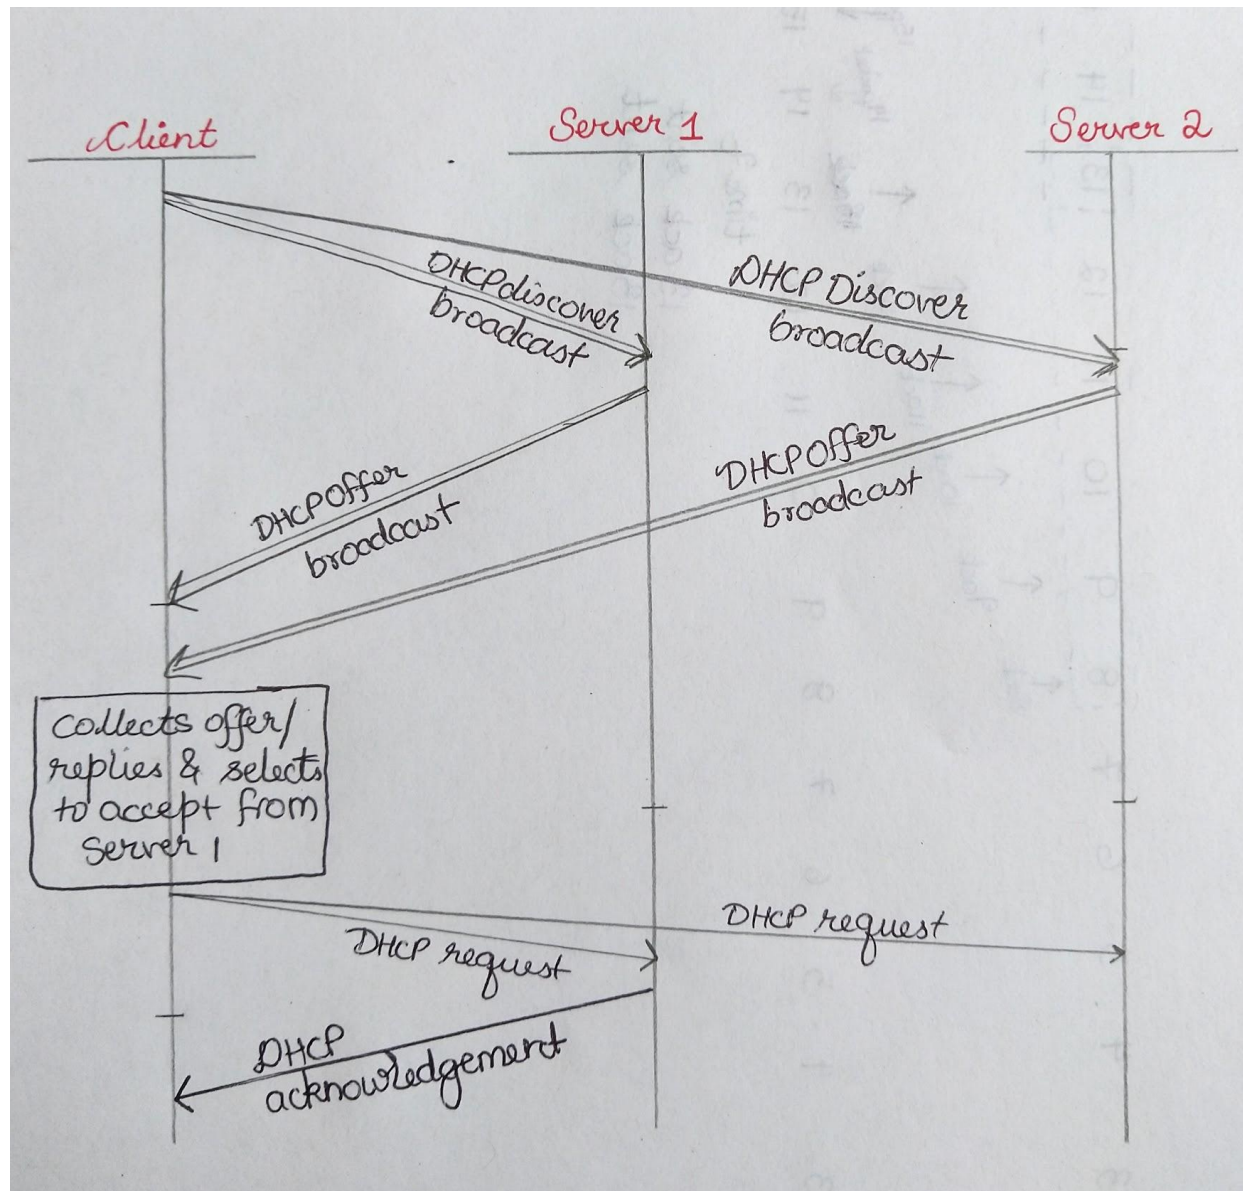 Client
Server 1
Server 2
DHCPdiscover
broadcast
DHCP Discover
broadcast
DHCPOffer
broadcast
DHCPOffer
broadcast
Collects offer/
replies & selects
to accept from
Server 1
DHCP request
DHCP request
DHCP
acknowledgement